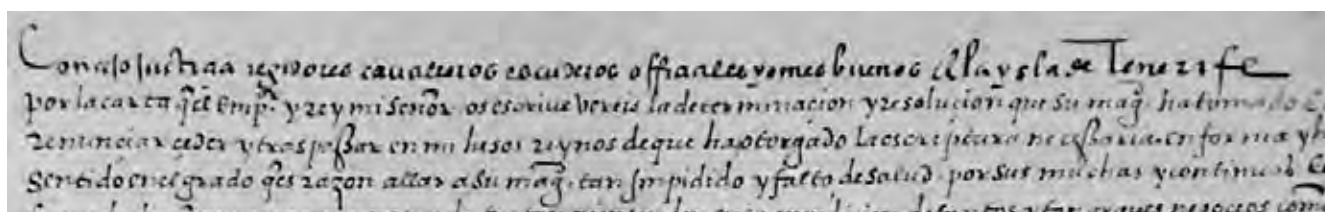 Concejo justicia regidores cavalleros escuderos officiales y omes buenos de la ysla de Tenerife
por la carta q̃ el Emp.or y rey mi señor os escrive vereis la determinacion y resolucion que su mag.d ha tomado
renunciar ceder y traspassar en mi los sus reynos de que ha otorgado la escriptura necessaria. en forma y h
sentido en el grado q̃ es razon allar a su mag.d tan impidido y falto de salud. por sus muchas y continuas